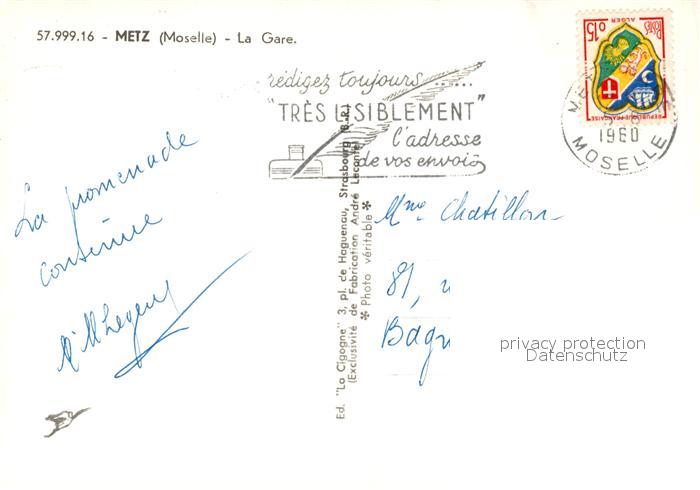 57.999.16 - METZ (Moselle) - La Gare.
POSTES
ALGER
0,15
REPUBLIQUE FRANÇAISE
rédigez toujours ......
"TRÈS LISIBLEMENT"
l'adresse
de vos envois
1960
MOSELLE
La promenade
continue
Mme Chatillon
81,
Ed. "La Cigogne" 3, pl. de Haguenau, Strasbourg (B.-R.)
(Exclusivité de Fabrication André Leconte)
* Photo véritable *
privacy protection
Datenschutz